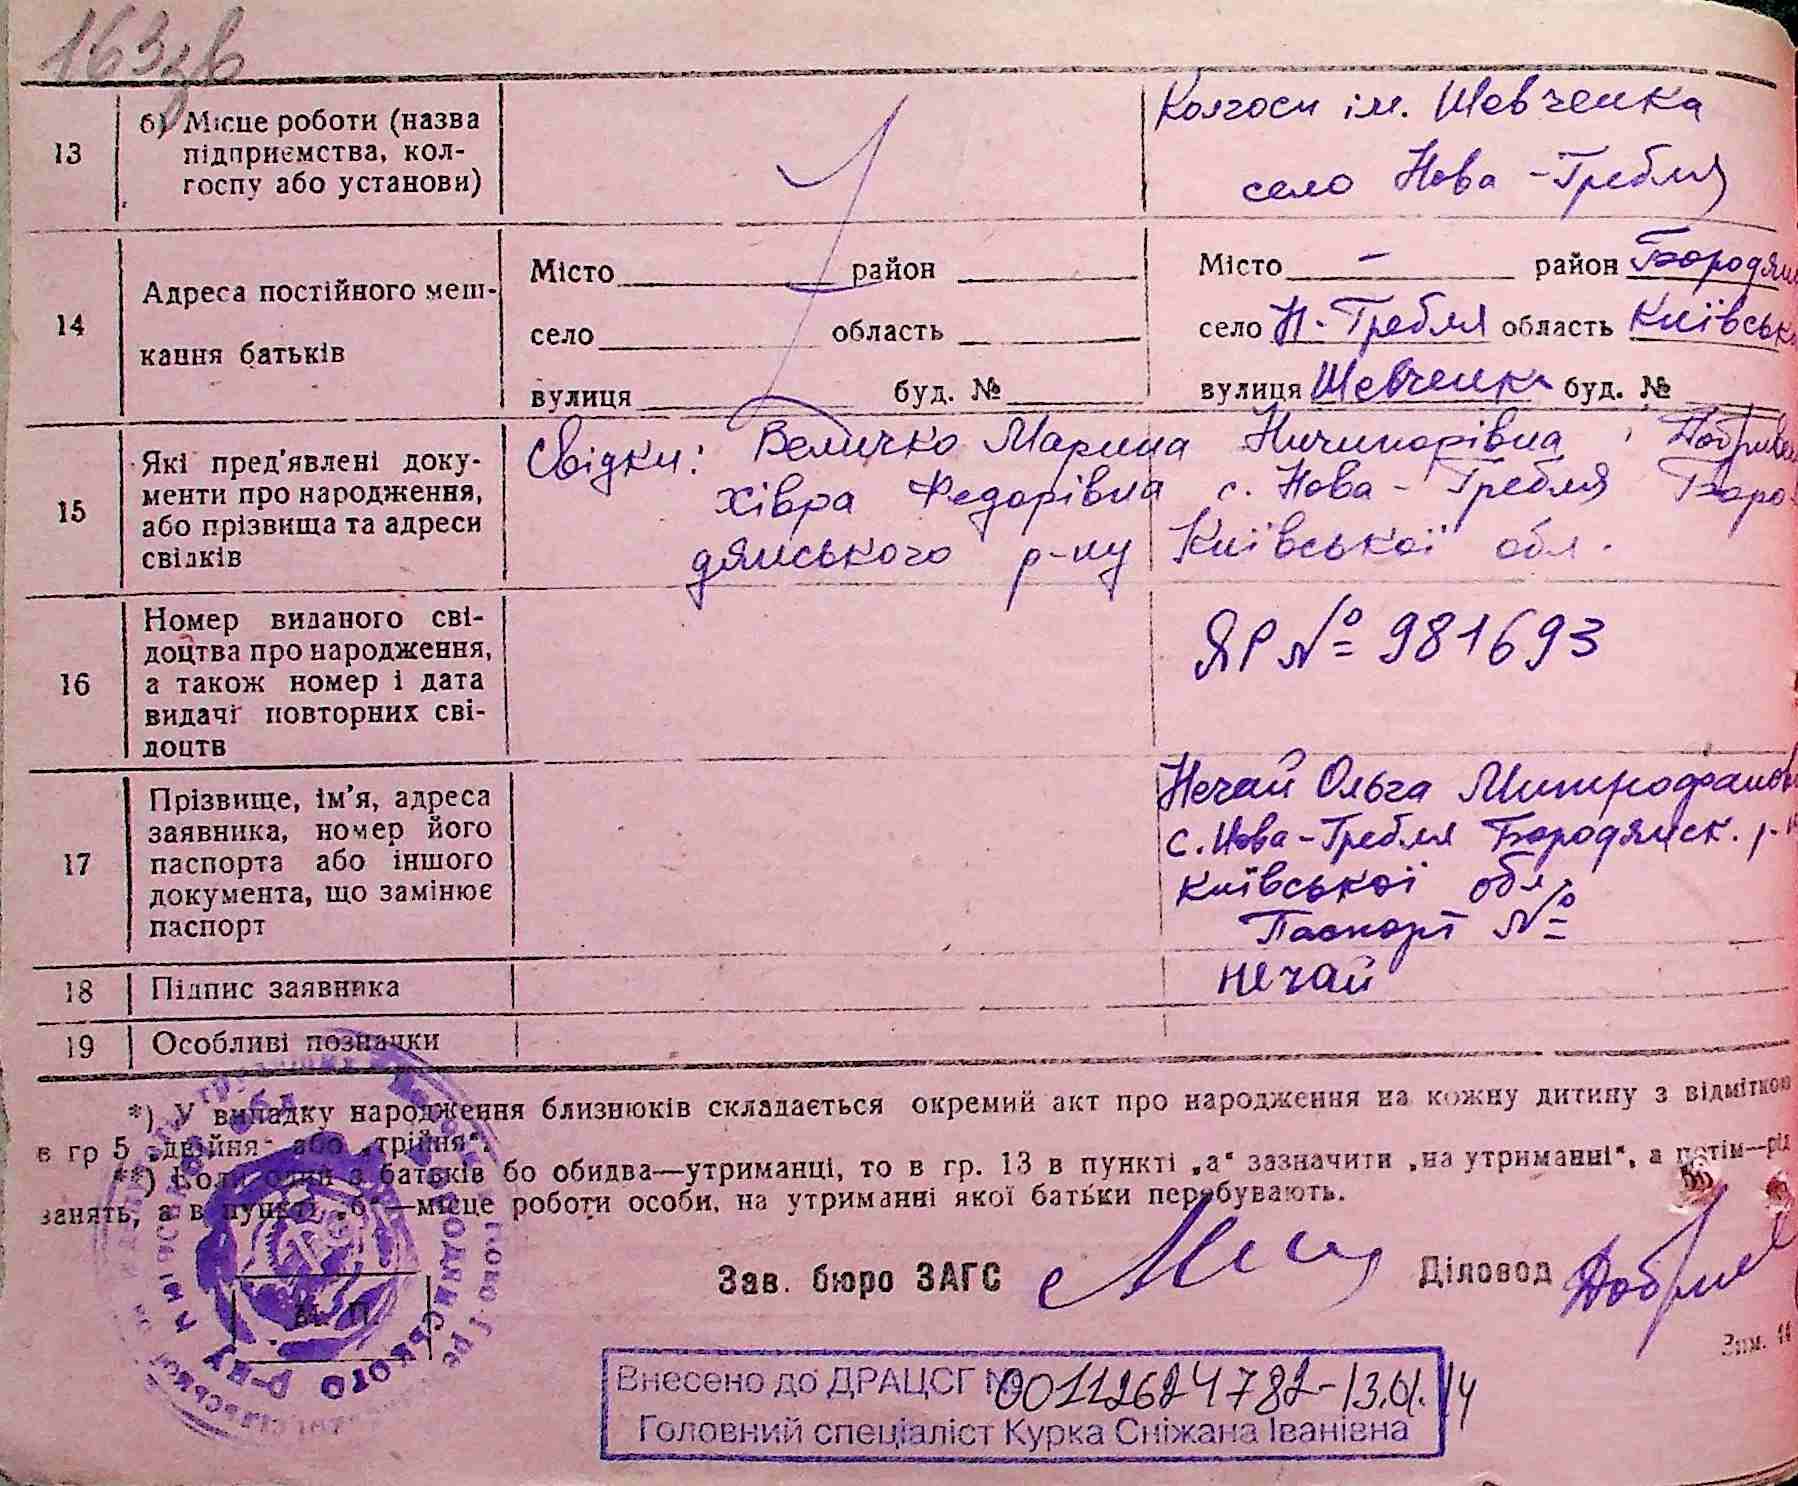 163зв
13 б) Місце роботи (назва підприємства, колгоспу або установи)
Колгосп ім. Шевченка
село Нова-Гребля
14 Адреса постійного мешкання батьків
Місто район
село область
вулиця буд. №
Місто – район Бородян
село Н-Гребля область Київськ
вулиця Шевченк буд. №
15 Які пред'явлені документи про народження, або прізвища та адреси свідків
Свідки: Величко Марина Ничипорівна,
Хівра Федорівна с. Нова-Гребля Боро-
дянського р-ну Київської обл.
16 Номер виданого свідоцтва про народження, а також номер і дата видачі повторних свідоцтв
ЯР № 981693
17 Прізвище, ім'я, адреса заявника, номер його паспорта або іншого документа, що замінює паспорт
Нечай Ольга Митрофанов
с. Нова-Гребля Бородянск. р-н
Київської обл.
Паспорт №
18 Підпис заявника
Нечай
19 Особливі позначки
*) У випадку народження близнюків складається окремий акт про народження на кожну дитину з відміткою
в гр 5 „двійня“ або „трійня“.
**) Коли один з батьків бо обидва—утриманці, то в гр. 13 в пункті „а“ зазначити „на утриманні“, а потім—рід
занять, а в пункті „б“—місце роботи особи, на утриманні якої батьки перебувають.
Зав. бюро ЗАГС
Діловод
М. П.
Внесено до ДРАЦСГ № 00112624782-13.01.14
Головний спеціаліст Курка Сніжана Іванівна